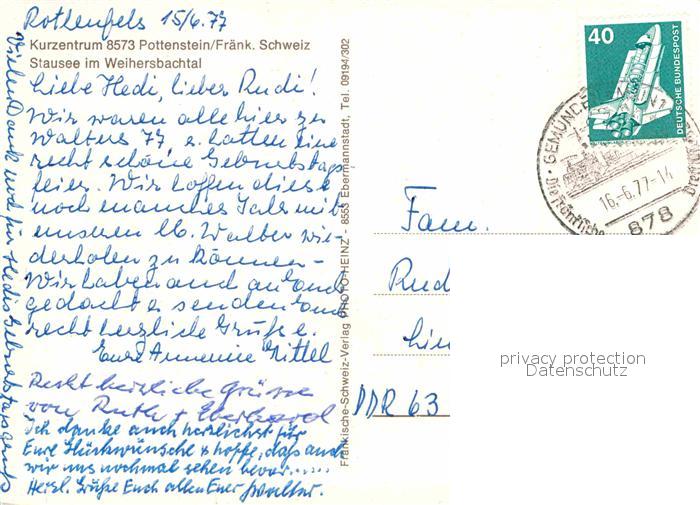 Rothenfels 15/6.77
Kurzentrum 8573 Pottenstein/Fränk. Schweiz
Stausee im Weihersbachtal
Liebe Hedi, lieber Rudi!
Wir waren alle hier zu
Walters 77 u. hatten eine
recht schöne Geburtstags
feier. Wir hoffen diese
noch manches Jahr mit
unserem lb. Walter wie-
derholen zu können -
Wir haben auch an Euch
gedacht u. senden Euch
recht herzliche Grüße
Eure Annemine Kittel
Recht herzliche Grüsse
von Ruth + Eberhard
Ich danke auch herzlichst für
Eure Glückwünsche + hoffe, daß auch
wir uns nochmal sehen bevor.....
Herzl. Grüße Euch allen Euer Walter.
Vielen Dank noch für Hedis Geburtstagsgruß
Fränkische-Schweiz-Verlag PHOTO-HEINZ - 8553 Ebermannstadt, Tel. 09194/302
40
DEUTSCHE BUNDESPOST
GEMÜNDEN MAIN 1
16.-6.77-14
Die fränkische
878
Fam.
Rud
Lin
DDR 63
privacy protection
Datenschutz